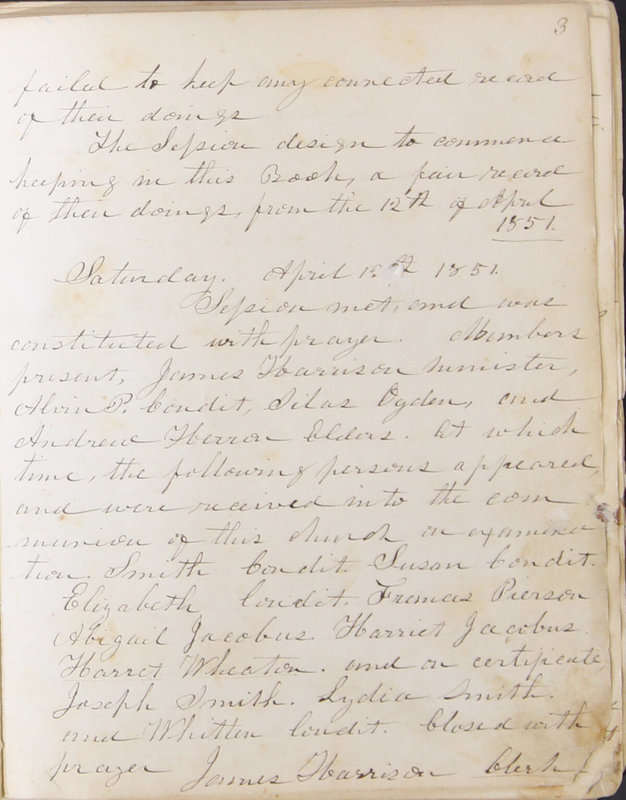 3
failed to keep any connected record
of their doings
The Session design to commence
keeping in this Book, a fair record
of their doings, from the 12th of April
1851.
Saturday. April 12th 1851.
Session met, and was
constituted with prayer. Members
present, James Harrison minister,
Alvin P. Condit, Silas Ogden, and
Andrew Herron Elders. At which
time, the following persons appeared,
and were received into the com
munion of this church on examina
tion. Smith Condit. Susan Condit.
Elizabeth Condit. Frances Pierson
Abigail Jacobus Harriet Jacobus
Harret Wheaton. and on certificate,
Joseph Smith. Lydia Smith.
and Whitten Condit. Closed with
prayer James Harrison Clerk